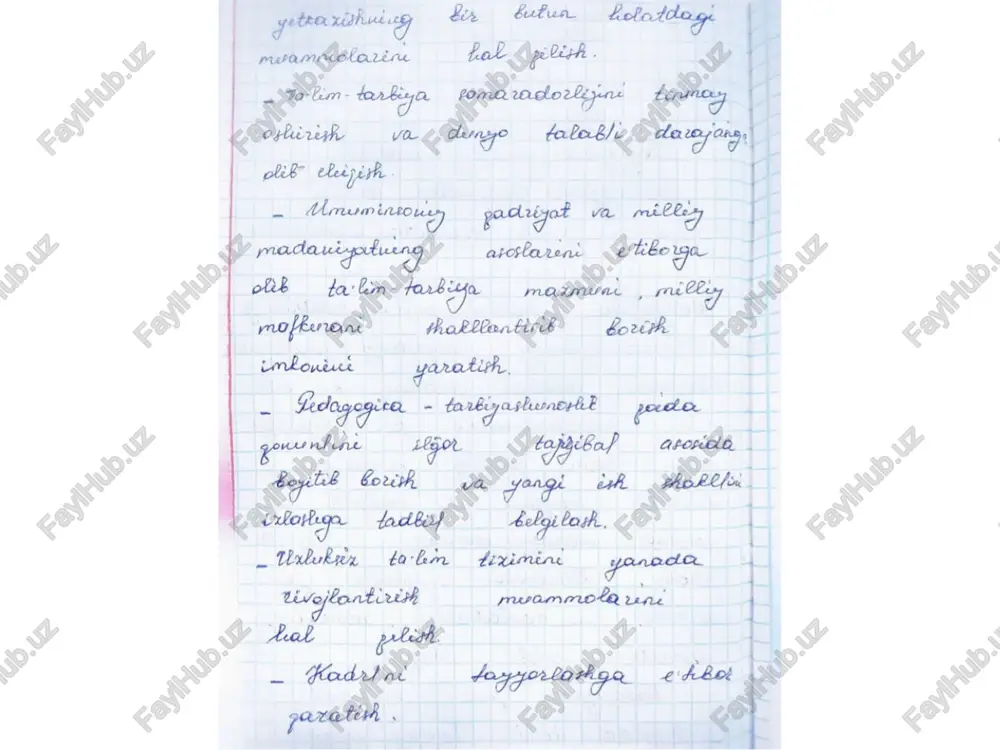 yetkazishning bir butun holatdagi
muammolarini hal qilish.
- Ta'lim-tarbiya samaradorligini tinmay
oshirish va dunyo talabli darajaga
olib chiqish.
- Umuminsoniy qadriyat va milliy
madaniyatning asoslarini e'tiborga
olib ta'lim-tarbiya mazmuni, milliy
mafkurani shakllantirib borish
imkonini yaratish.
- Pedagogika - tarbiyashunoslik qoida
qonunlini ilğor asosida
boyitib borish va yangi ish shakllini
izlashga tadbirl belgilash.
- Uzluksiz ta'lim tizimini yanada
rivojlantirish muammolarini
hal qilish.
- Kadrlni tayyorlashga e'tibor
qaratish.
FaylHub.uz